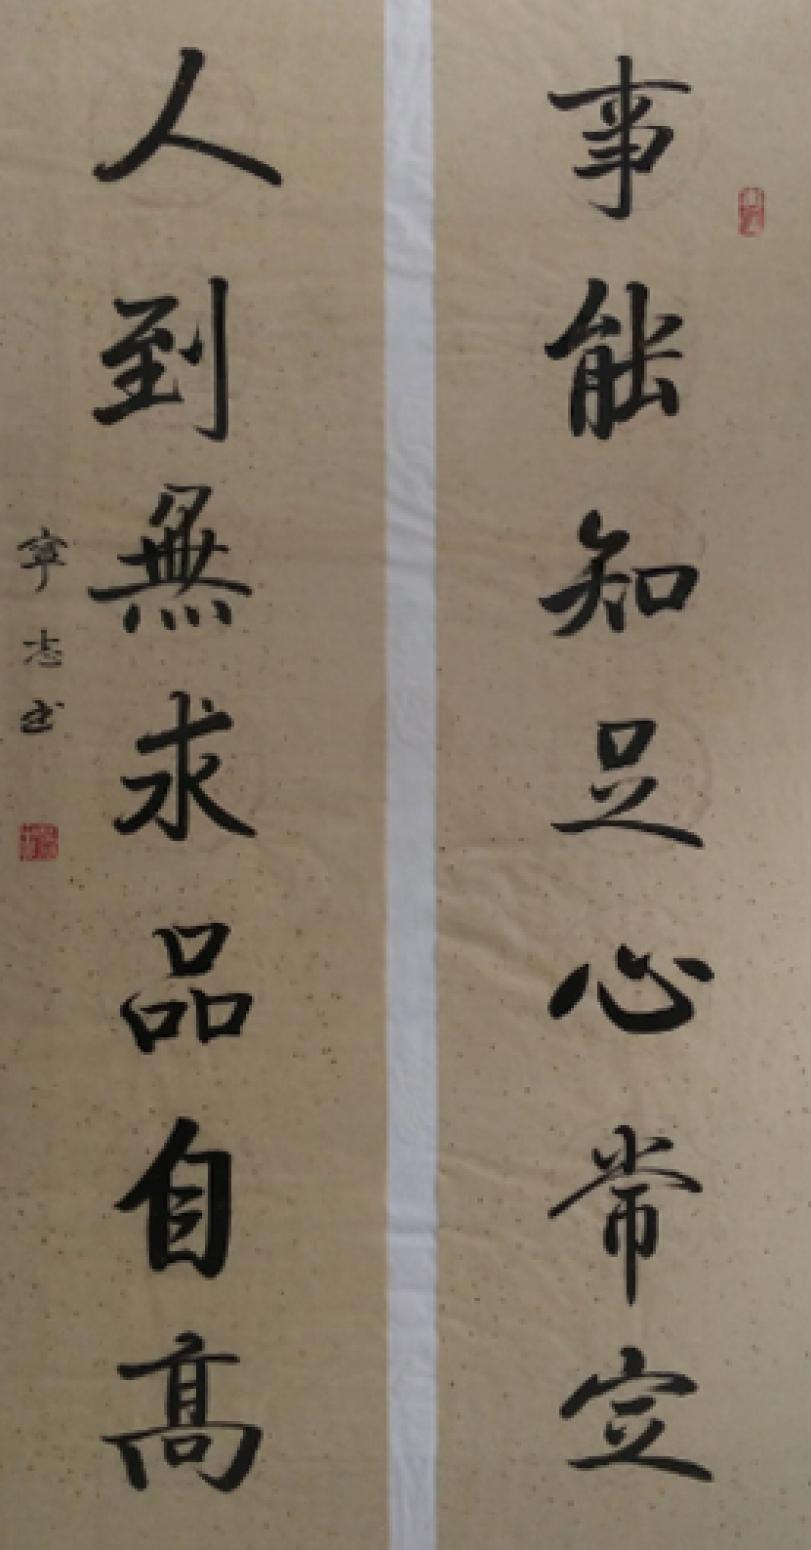 事能知足心常定
人到無求品自高
寧志书